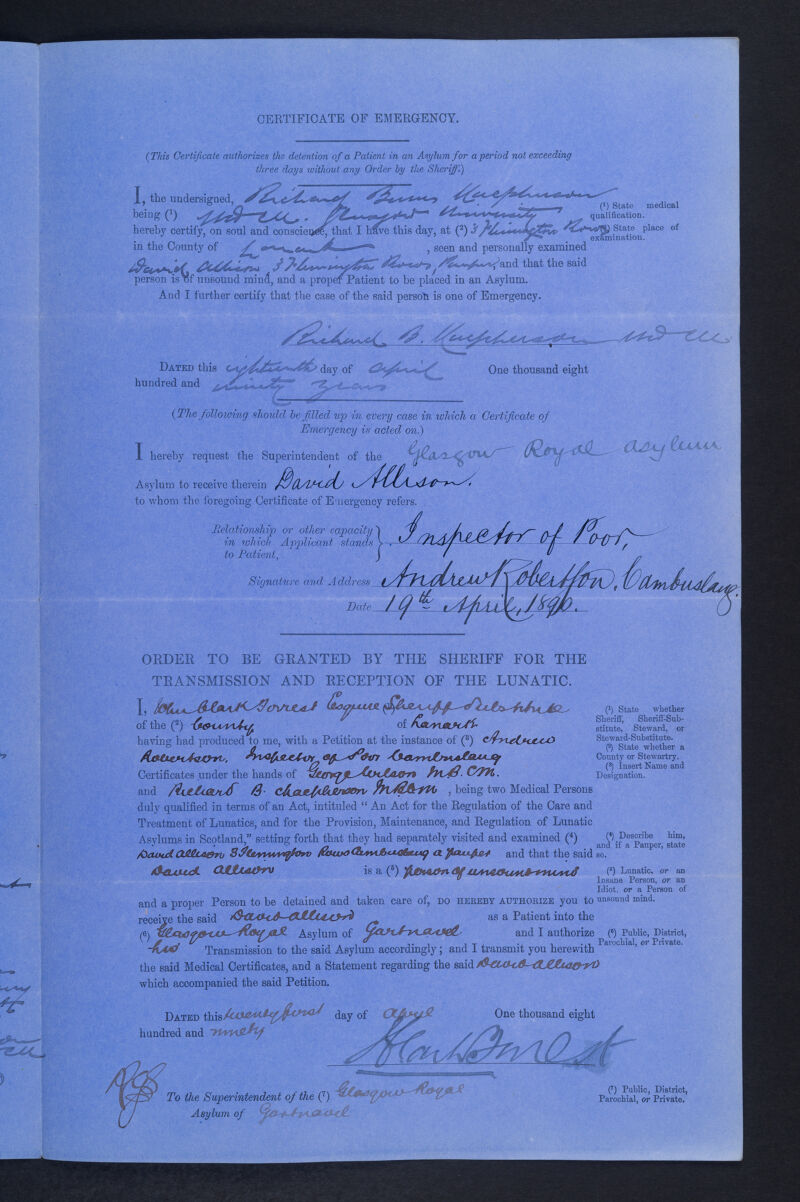 CERTIFICATE OF EMERGENCY.
(This Certificate authorizes the detention of a Patient in an Asylum for a period not exceeding
three days without any Order by the Sheriff.)
I, the undersigned, Richard Burns Macpherson
being (¹) MD CM. Glasgow University
(¹) State medical
qualification.
hereby certify, on soul and conscience, that I have this day, at (²) 3 Flemington Rows
(²) State place of
examination.
in the County of Lanark , seen and personally examined
David Allison 3 Flemington Rows, Pauper, and that the said
person is of unsound mind, and a proper Patient to be placed in an Asylum.
And I further certify that the case of the said person is one of Emergency.
Richard B. Macpherson MD CM
DATED this eighteenth day of April One thousand eight
hundred and ninety years
(The following should be filled up in every case in which a Certificate of
Emergency is acted on.)
I hereby request the Superintendent of the Glasgow Royal Asylum
Asylum to receive therein David Allison.
to whom the foregoing Certificate of Emergency refers.
Relationship or other capacity
in which Applicant stands
to Patient,
Inspector of Poor,
Signature and Address Andrew Robertson, Cambuslang.
Date 19th April, 1890.
ORDER TO BE GRANTED BY THE SHERIFF FOR THE
TRANSMISSION AND RECEPTION OF THE LUNATIC.
I, John Clark Forrest Esquire Sheriff Substitute
of the (²) County of Lanark
(¹) State whether
Sheriff, Sheriff-Sub-
stitute, Steward, or
Steward-Substitute.
(²) State whether a
County or Stewartry.
(³) Insert Name and
Designation.
having had produced to me, with a Petition at the instance of (³) Andrew
Robertson, Inspector of Poor Cambuslang
Certificates under the hands of George Wilson M.B. C.M.
and Richard B. Macpherson , being two Medical Persons
duly qualified in terms of an Act, intituled “ An Act for the Regulation of the Care and
Treatment of Lunatics, and for the Provision, Maintenance, and Regulation of Lunatic
Asylums in Scotland,” setting forth that they had separately visited and examined (⁴)
(⁴) Describe him,
and if a Pauper, state
so.
David Allison 3 Flemington Rows Cambuslang a pauper and that the said
David Allison is a (⁵) person of unsound mind
(⁵) Lunatic, or an
Insane Person, or an
Idiot, or a Person of
unsound mind.
and a proper Person to be detained and taken care of, DO HEREBY AUTHORIZE you to
receive the said David Allison as a Patient into the
(⁶) Glasgow Royal Asylum of Gartnavel and I authorize
(⁶) Public, District,
Parochial, or Private.
his Transmission to the said Asylum accordingly ; and I transmit you herewith
the said Medical Certificates, and a Statement regarding the said David Allison
which accompanied the said Petition.
DATED this twenty first day of April One thousand eight
hundred and ninety
To the Superintendent of the (⁷) Glasgow Royal
Asylum of Gartnavel
(⁷) Public, District,
Parochial, or Private.